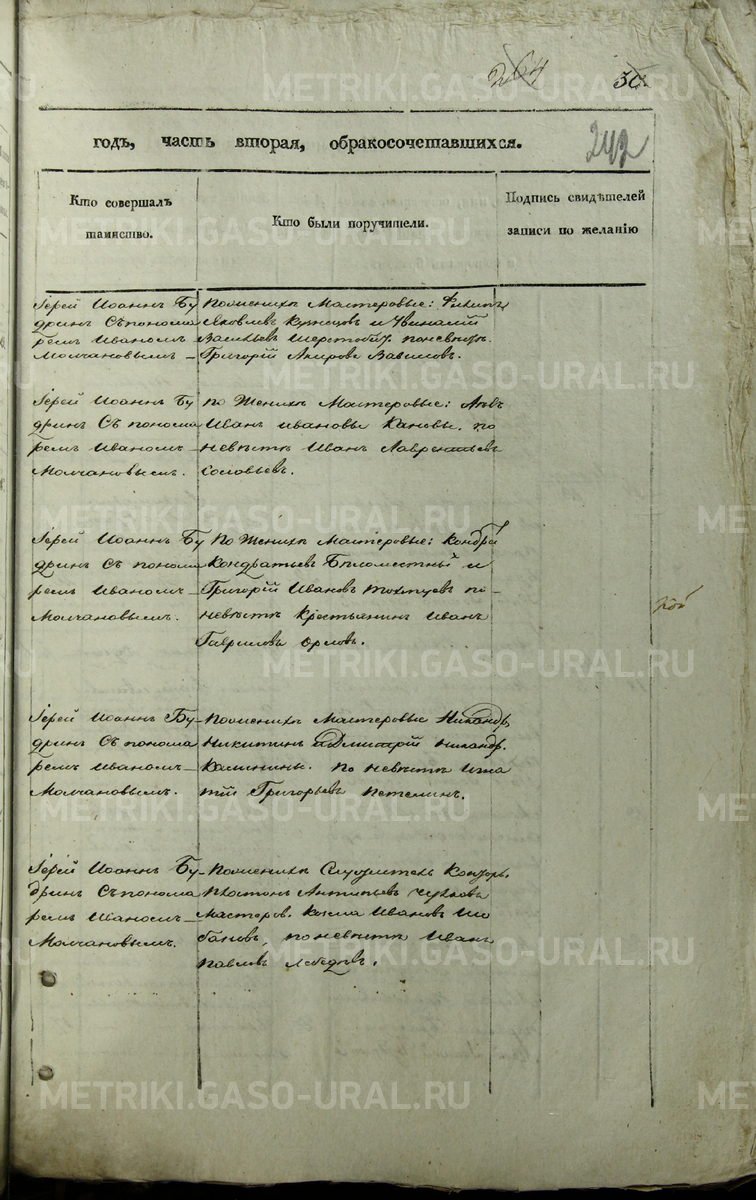 264
30
242
годъ, часть вторая, о бракосочетавшихся.
Кто совершалъ таинство.
Кто были поручители.
Подпись свидѣтелей записи по желанію
Іерей Иоаннъ Бу
дринъ Съ понома
ремъ Иваномъ
Молчановымъ
По женихѣ Мастеровые: Филипъ
Яковлевъ Кузнецовъ и
Васильевъ по невѣстѣ
Григорій Вавиловъ.
Іерей Иоаннъ Бу
дринъ Съ понома
ремъ Иваномъ
Молчановымъ.
По Женихѣ Мастеровые: Левъ
Иванъ Ивановы по
невѣстѣ Иванъ Лаврентьевъ
Соловьевъ.
Іерей Иоаннъ Бу
дринъ Съ понома
ремъ Иваномъ
Молчановымъ.
По Женихѣ Мастеровые: Кондра
Кондратьевъ Бѣломестных и
Григорій Ивановъ по
невѣстѣ Крестьянинъ Иванъ
Гавриловъ Орловъ.
Іерей Иоаннъ Бу
дринъ Съ понома
ремъ Иваномъ
Молчановымъ.
По женихѣ Мастеровые Никандр
Никитинъ и Дмитрій Никандр.
Калинины. По невѣстѣ Игна
тій Григорьевъ Петелинъ.
Іерей Иоаннъ Бу
дринъ Съ понома
ремъ Иваномъ
Молчановымъ.
По женихѣ Служитель Контор.
Платонъ Антипьевъ Чухловъ
Мастеров. Козма Ивановъ Ло
бановъ, по невѣстѣ Иванъ
Павловъ Лебедевъ.
METRIKI.GASO-URAL.RU